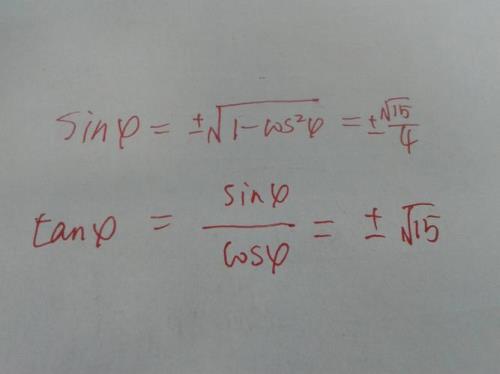 sinφ = ±√(1-cos²φ) = ±√15/4
tanφ = sinφ/cosφ = ±√15